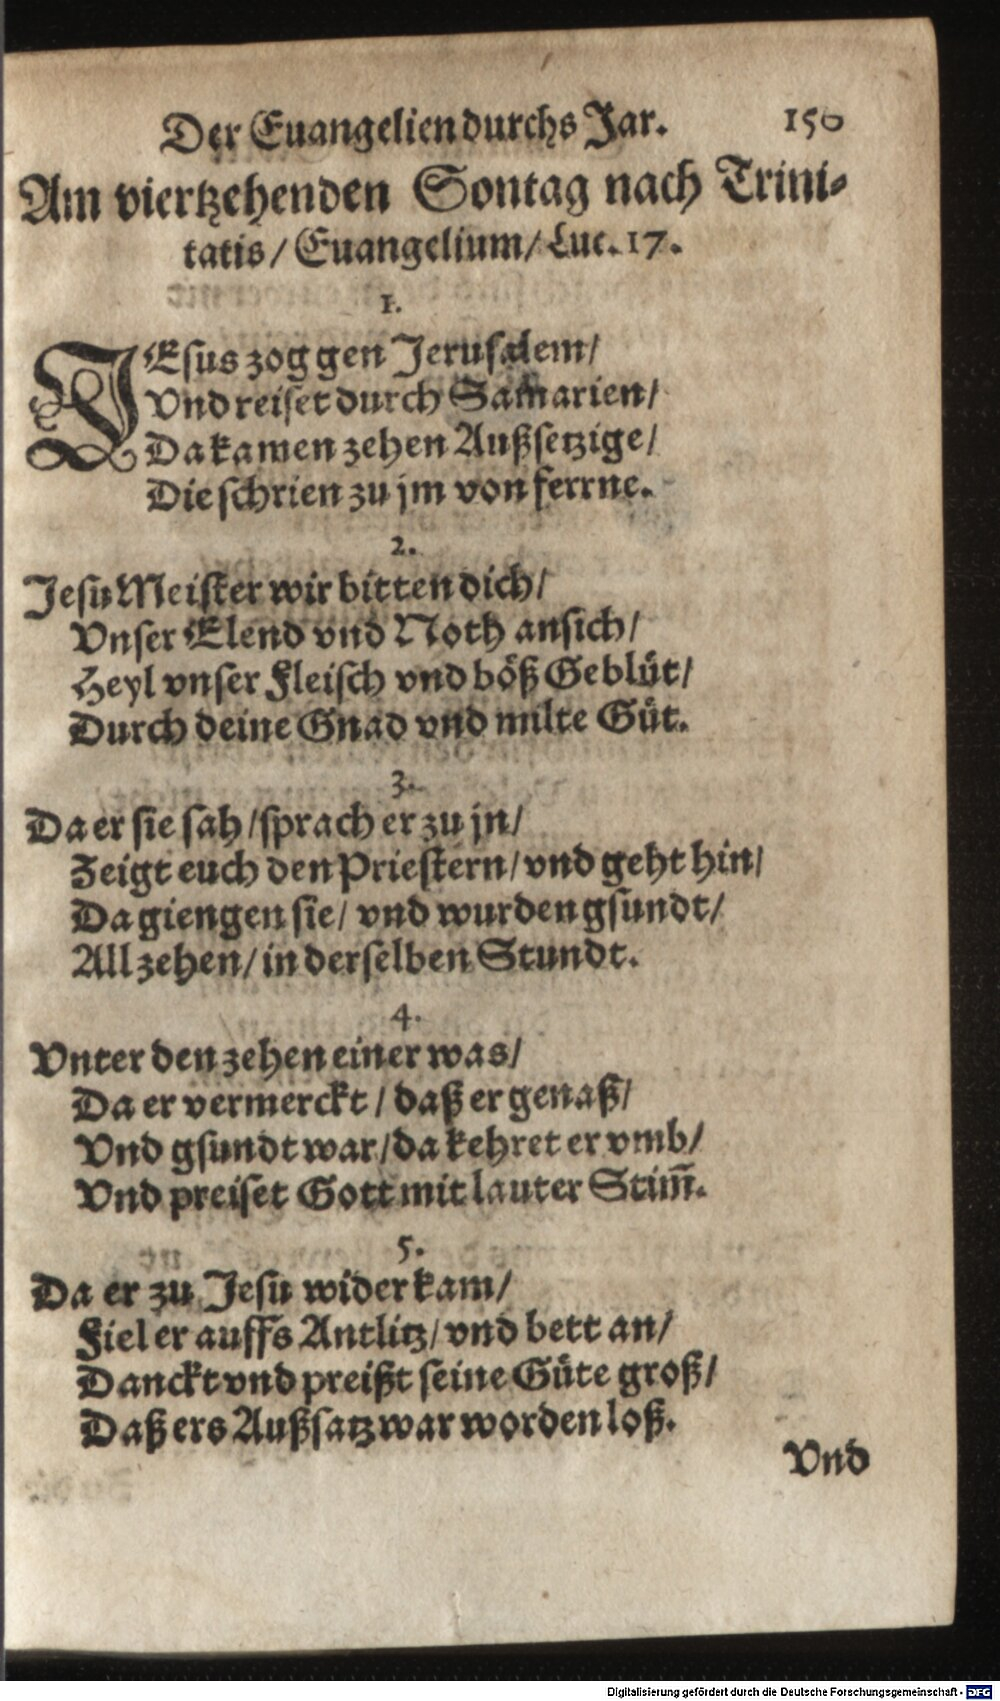 Der Euangelien durchs Jar. 150
Am viertzehenden Sontag nach Trini-
tatis / Euangelium / Luc. 17.
1.
JEsus zog gen Jerusalem /
Vnd reiset durch Samarien /
Da kamen zehen Außsetzige /
Die schrien zu jm von ferrne.
2.
Jesu Meister wir bitten dich /
Vnser Elend vnd Noth ansich /
Heyl vnser Fleisch vnd böß Geblüt /
Durch deine Gnad vnd milte Güt.
3.
Da er sie sah / sprach er zu jn /
Zeigt euch den Priestern / vnd geht hin /
Da giengen sie / vnd wurden gsundt /
All zehen / in derselben Stundt.
4.
Vnter den zehen einer was /
Da er vermerckt / daß er genaß /
Vnd gsundt war / da kehret er vmb /
Vnd preiset Gott mit lauter Stim̃.
5.
Da er zu Jesu wider kam /
Fiel er auffs Antlitz / vnd bett an /
Danckt vnd preißt seine Güte groß /
Daß ers Außsatz war worden loß.
Vnd
Digitalisierung gefördert durch die Deutsche Forschungsgemeinschaft - DFG